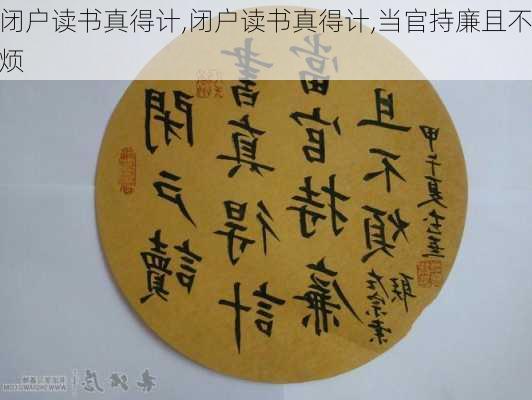 闭户读书真得计,闭户读书真得计,当官持廉且不
烦
閉户讀
書真得計
當官持廉
且不煩
甲午夏
左宗棠
聯